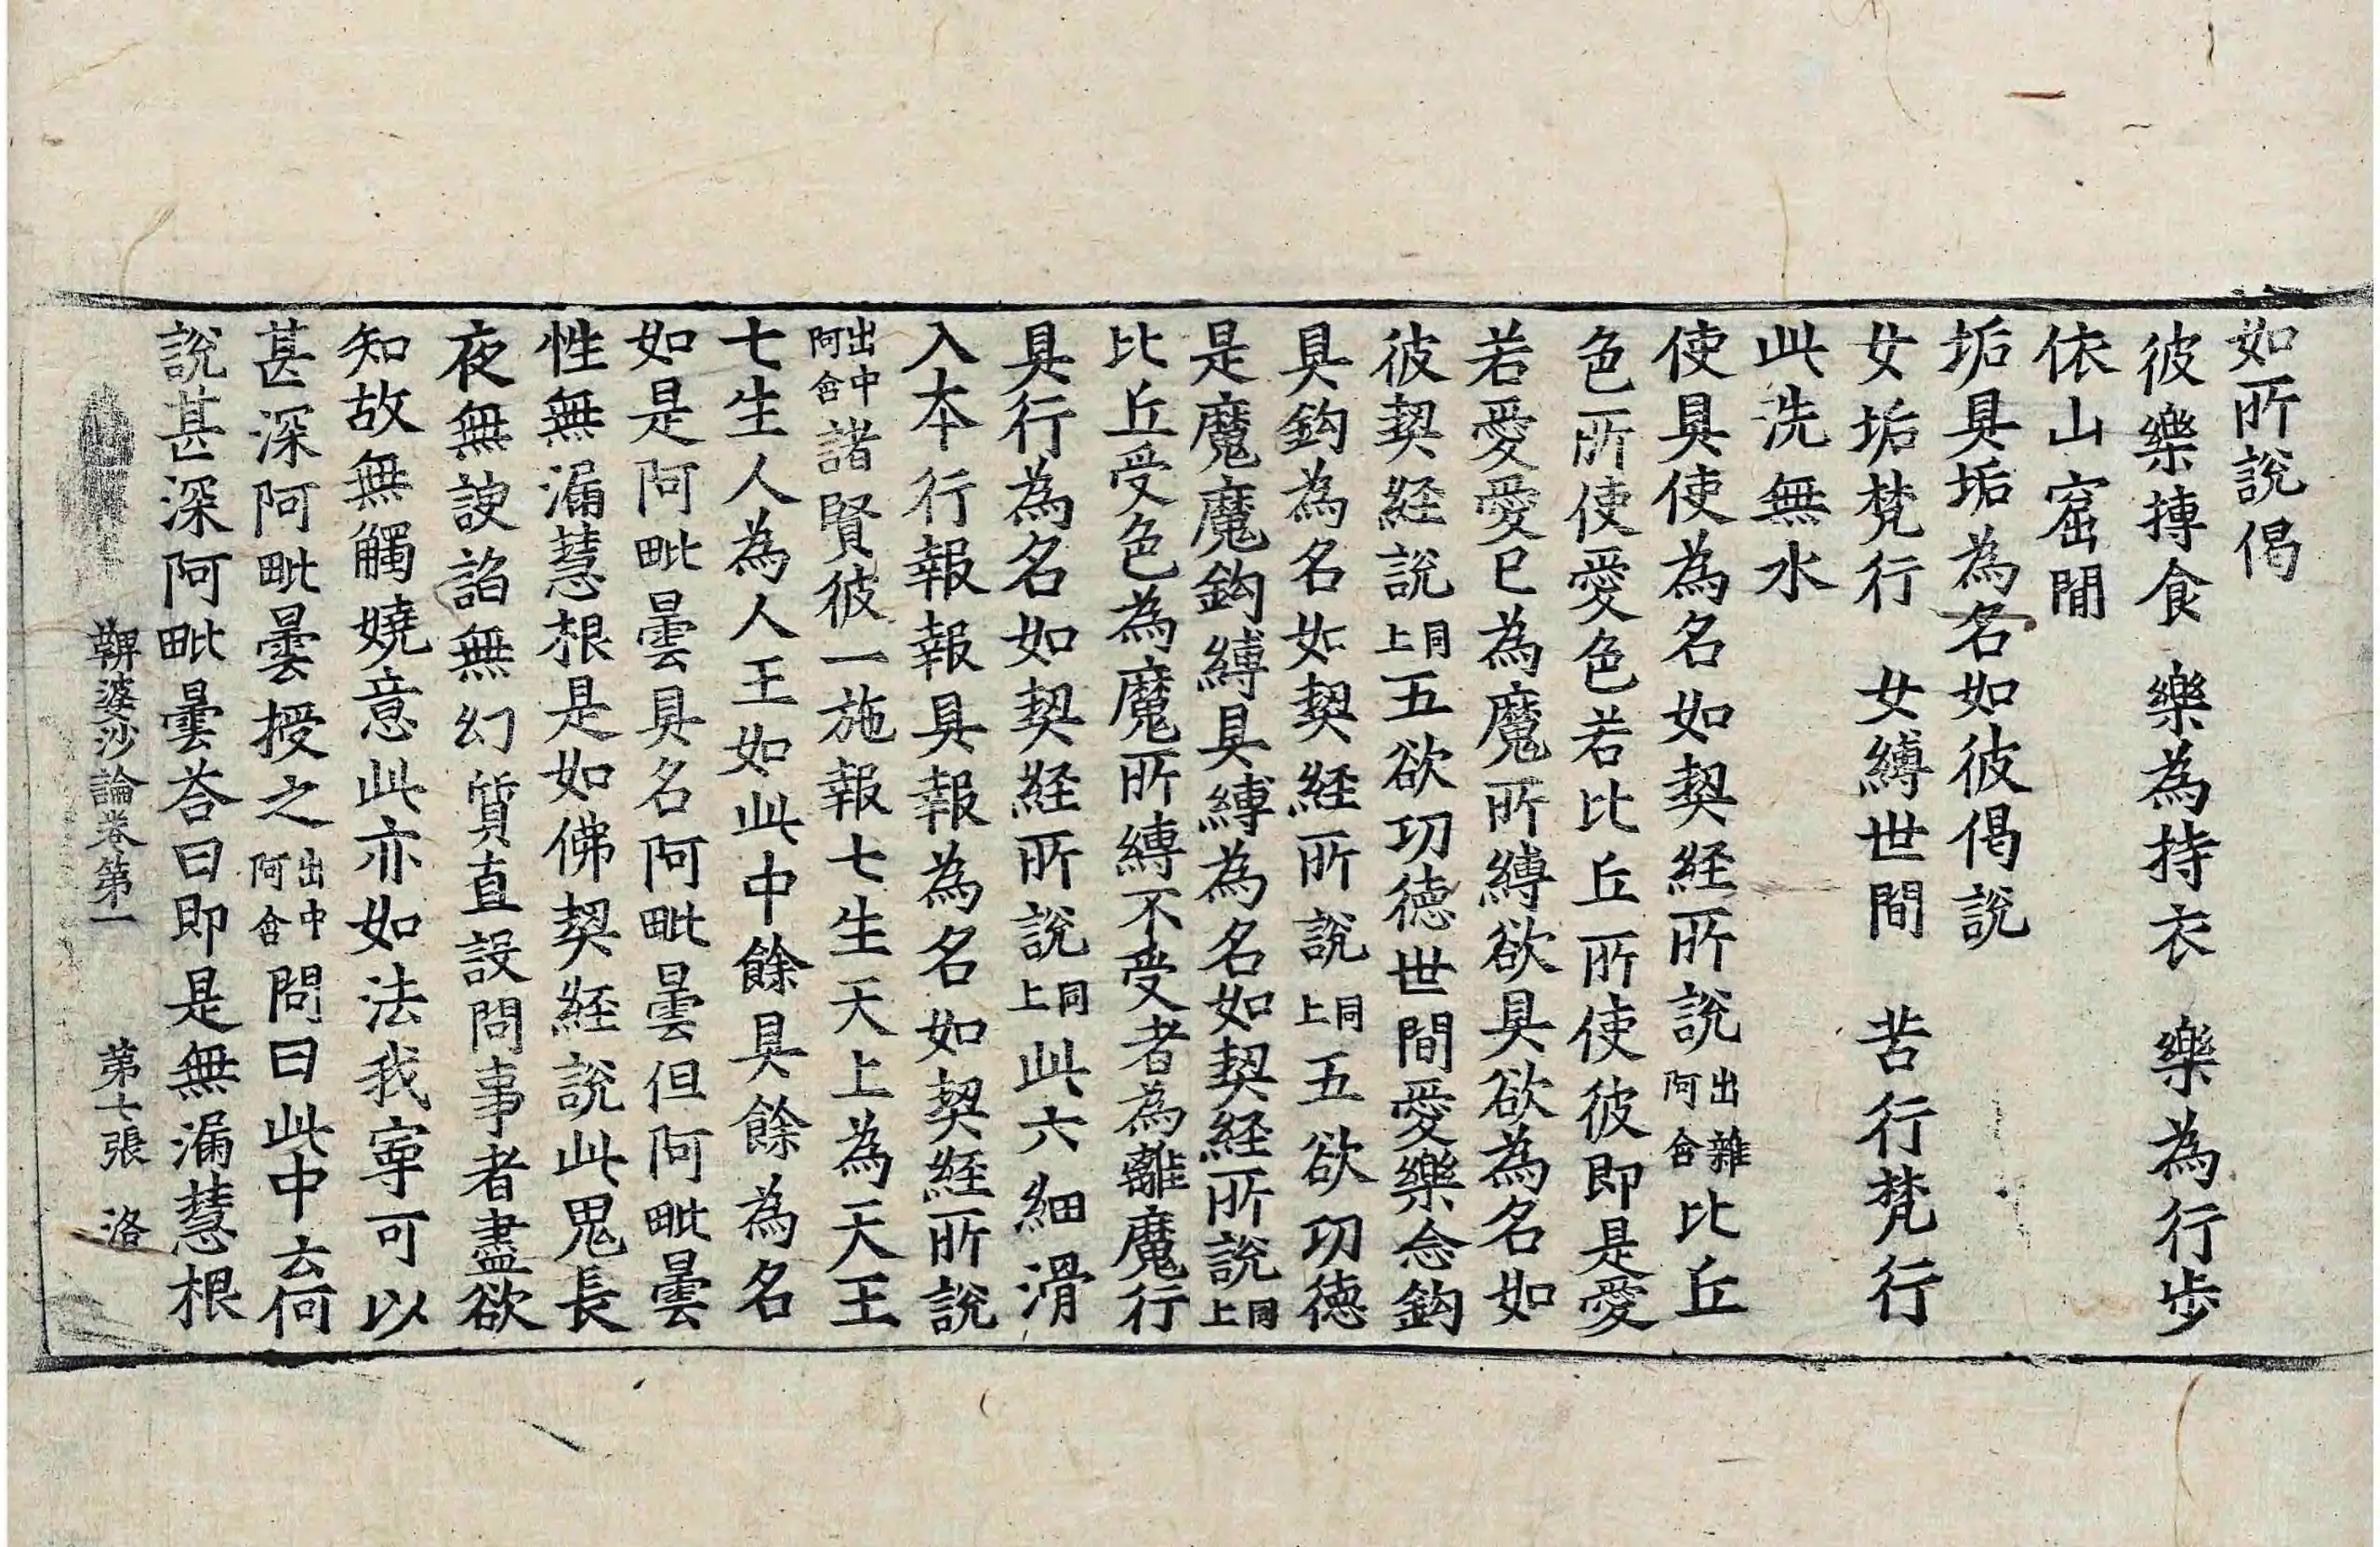 如所說偈
彼樂摶食　樂為持衣　樂為行步
依山窟間
垢具垢為名如彼偈說
女垢梵行　女縛世間　苦行梵行
此洗無水
使具使為名如契経所說出雜阿含比丘
色所使愛色若比丘所使彼即是愛
若愛愛已為魔所縛欲具欲為名如
彼契経說同上五欲功德世間愛樂念鈎
具鈎為名如契経所說同上五欲功德
是魔魔鈎縛具縛為名如契経所說同上
比丘受色為魔所縛不受者為離魔行
具行為名如契経所說同上此六細滑
入本行報報具報為名如契経所說
出中阿含諸賢彼一施報七生天上為天王
七生人為人王如此中餘具餘為名
如是阿毗曇具名阿毗曇但阿毗曇
性無漏慧根是如佛契経說此鬼長
夜無諛諂無幻質直設問事者盡欲
知故無觸嬈意此亦如法我寧可以
甚深阿毗曇授之出中阿含問曰此中云何
說甚深阿毗曇荅曰即是無漏慧根
鞞婆沙論卷第一　第七張　洛